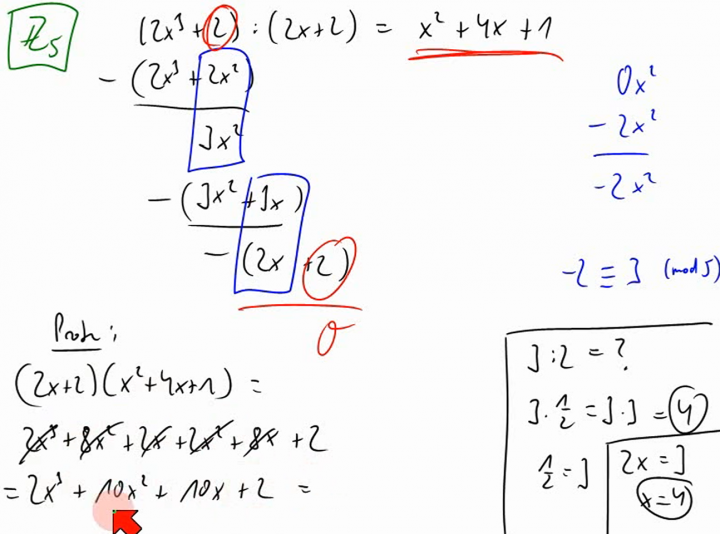 ℤ₅
(2x³ + 2) : (2x+2) = x² + 4x + 1
− (2x³ + 2x²)
3x²
− (3x² + 3x)
− (2x + 2)
0
0x²
− 2x²
−2x²
−2 ≡ 3 (mod 5)
Prob:
(2x+2)(x²+4x+1) =
2x³ + 8x² + 2x + 2x² + 8x + 2
= 2x³ + 10x² + 10x + 2 =
3 : 2 = ?
3 · ½ = 3 · 3 = 4
½ = 3
2x = 3
x = 4